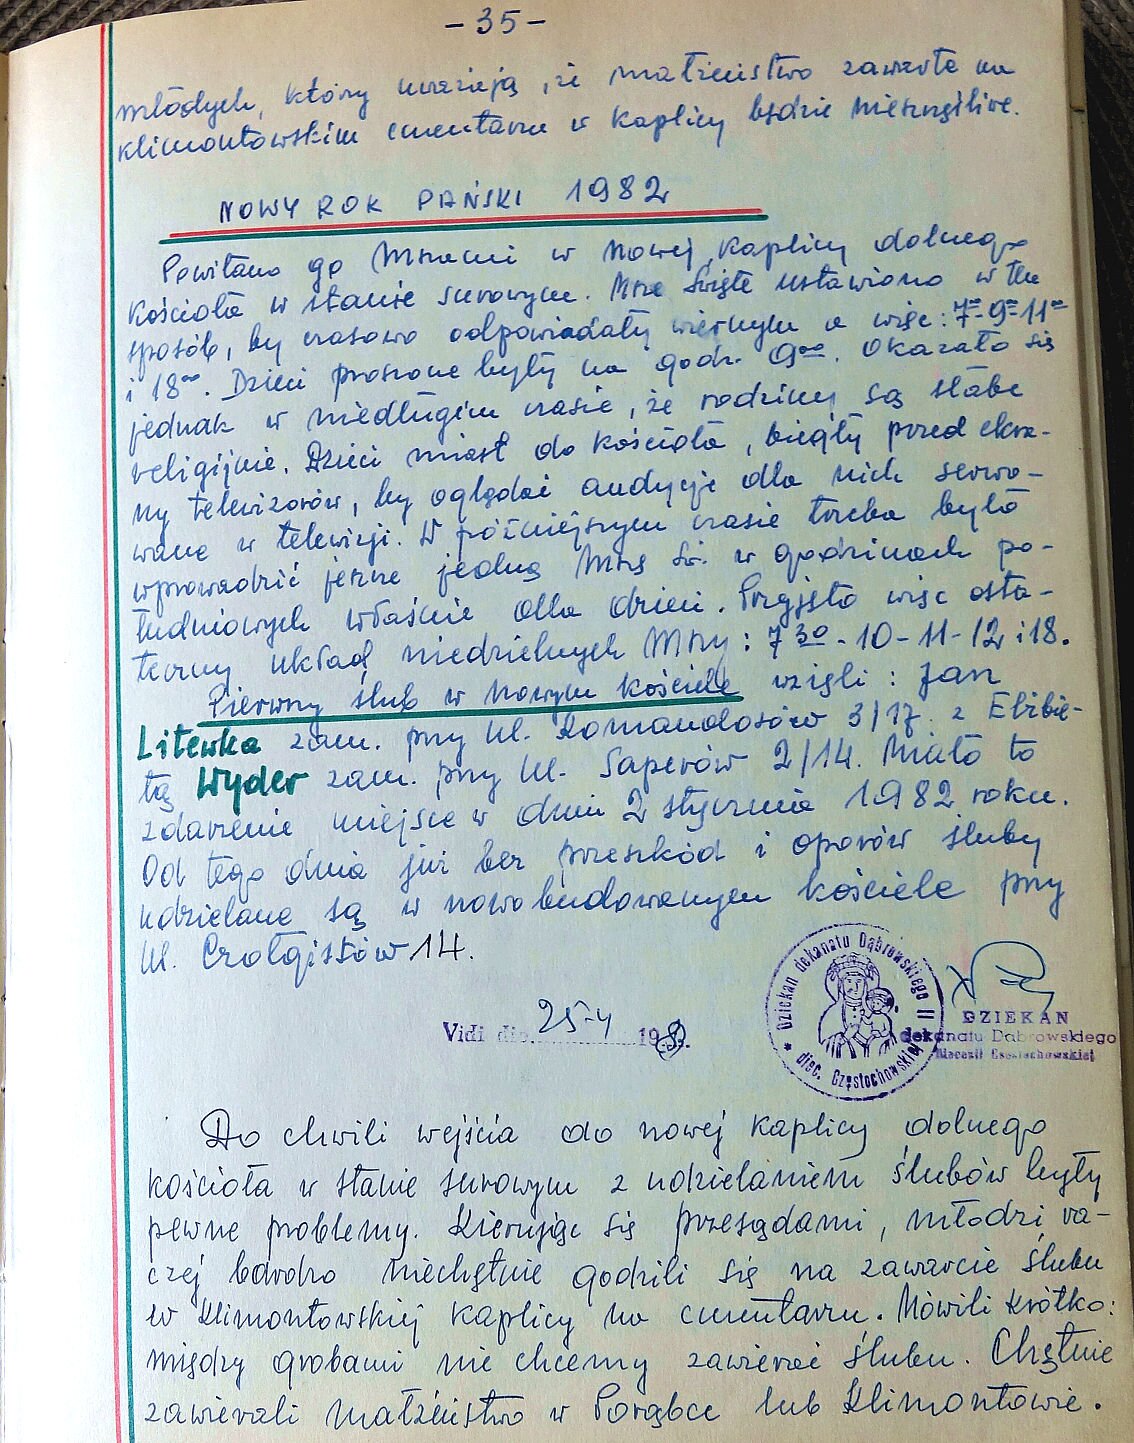 - 35 -
młodych, który uważają, że małżeństwo zawarte na
klimontowskim cmentarzu w kaplicy będzie nieszczęśliwe.
NOWY ROK PAŃSKI 1982
Powitano go Mszami w nowej kaplicy dolnego
kościoła w stanie surowym. Msze Święte ustawiono w ten
sposób, by czasowo odpowiadały wiernym a więc: 7⁰⁰-9⁰⁰-11⁰⁰
i 18⁰⁰. Dzieci proszone były na godz. 9⁰⁰. Okazało się
jednak w niedługim czasie, że rodziny są słabe
religijnie. Dzieci miast do kościoła, biegły przed ekra-
ny telewizorów, by oglądać audycje dla nich serwo-
wane w telewizji. W późniejszym czasie trzeba było
wprowadzić jeszcze jedną Mszę Św. w godzinach po-
łudniowych właśnie dla dzieci. Przyjęto więc osta-
teczny układ niedzielnych Mszy: 7³⁰-10-11-12 i 18.
Pierwszy ślub w nowym kościele wzięli: Jan
Litewka zam. przy ul. Komandosów 3/17 z Elżbie-
tą Wyder zam. przy ul. Saperów 2/14. Miało to
zdarzenie miejsce w dniu 2 stycznia 1982 roku.
Od tego dnia już bez przeszkód i oporów śluby
udzielane są w nowobudowanym kościele przy
ul. Czołgistów 14.
Vidi die 25-4 198
* Dziekan dekanatu Dąbrowskiego II * diec. Częstochowskiej
DZIEKAN
dekanatu Dąbrowskiego
Diecezji Częstochowskiej
Do chwili wejścia do nowej kaplicy dolnego
kościoła w stanie surowym z udzielaniem ślubów były
pewne problemy. Kierując się przesądami, młodzi ra-
czej bardzo niechętnie godzili się na zawarcie ślubu
w Klimontowskiej kaplicy na cmentarzu. Mówili krótko:
między grobami nie chcemy zawierać ślubu. Chętnie
zawierali małżeństwo w Porąbce lub Klimontowie.